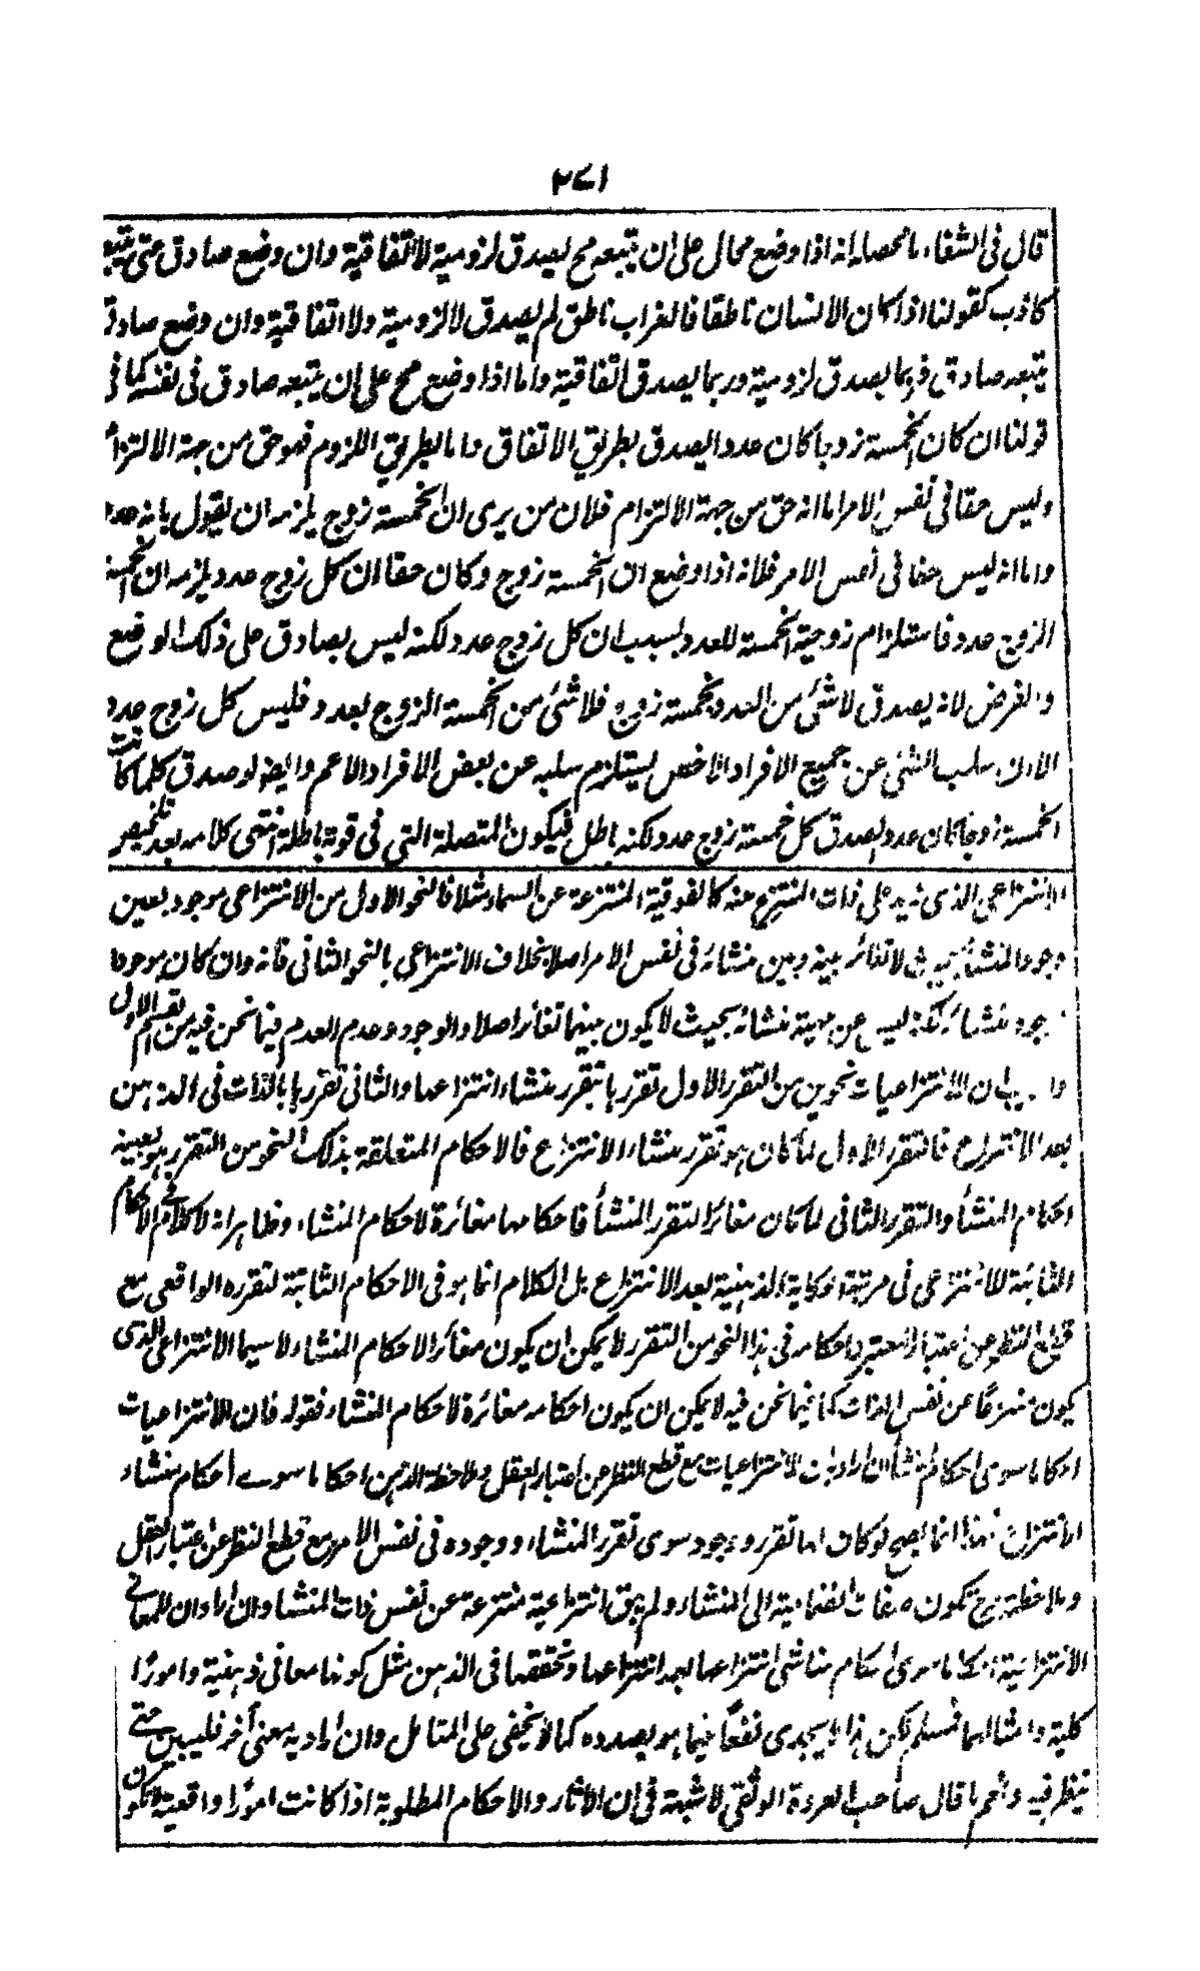 ٢٧١
قال فى الشفاء ما محصله انه اذا وضع محال على ان يتبعه مح يصدق لزومية لا اتفاقية وان وضع صادق حتى يتبعه
كاذب كقولنا اذا كان الانسان ناطقا فالغراب ناطق لم يصدق لا لزومية ولا اتفاقية وان وضع صادق
يتبعه صادق فربما يصدق لزومية وربما يصدق اتفاقية واما اذا وضع مح على ان يتبعه صادق فى نفسه كما فى
قولنا ان كان الخمسة زوجا كان عددا يصدق بطريق الاتفاق واما بطريق اللزوم فهو حق من جهة الالتزام
وليس حقا فى نفس الامر اما انه حق من جهة الالتزام فلان من يرى ان الخمسة زوج يلزمه ان يقول بانه عدد
واما انه ليس حقا فى نفس الامر فلانه اذا وضع ان الخمسة زوج وكان حقا ان كل زوج عدد يلزمه ان الخمسة
الزوج عدد فاستلزام زوجية الخمسة للعدد بسبب ان كل زوج عدد لكنه ليس بصادق على ذلك الوضع
والفرض لانه يصدق لا شئ من العدد بخمسة زوج فلا شئ من الخمسة الزوج بعدد فليس كل زوج عدد
سلب الشئ عن جميع الافراد الاخص يستلزم سلبه عن بعض الافراد الاعم وايضا لو صدق كلما كانت
الخمسة زوجا كان عددا يصدق كل خمسة زوج عدد لكنه باطل فيكون المتصلة التى فى قوته باطلة انتهى كلامه بعد تلخيص
الانتزاعى الذى يزيد على ذات المنتزع عنه كالفوقية المنتزعة عن السماء مثلا فالنحو الاول من الانتزاعى موجود بعين
وجود المنشأ بحيث لا تغائر بينه وبين منشائه فى نفس الامر اصلا بخلاف الانتزاعى بالنحو الثانى فانه وان كان موجودا
بوجود منشائه لكنه ليس عين مهية منشائه بحيث لا يكون بينهما تغائر اصلا والوجود وعدم العدم فيما نحن فيه من القسم الاول
ان للانتزاعيات نحوين من التقرر الاول تقررها بتقرر منشاء انتزاعها والثانى تقررها بالذات فى الذهن
بعد الانتزاع فالتقرر الاول لما كان هو تقرر منشاء الانتزاع فالاحكام المتعلقة بذلك النحو من التقرر هو بعينه
احكام المنشأ والتقرر الثانى لما كان مغائرا لتقرر المنشأ فاحكامها مغائرة لاحكام المنشاء وظاهر انه لا كلام فى الاحكام
الثابتة للانتزاعى فى مرتبة الحكاية الذهنية بعد الانتزاع بل الكلام انما هو فى الاحكام الثابتة لتقرره الواقعى مع
قطع النظر عن اعتبار المعتبر واحكامه فى هذا النحو من التقرر لا يمكن ان يكون مغائرا لاحكام المنشاء لا سيما الانتزاعى الذى
يكون منتزعا عن نفس الذات كما فيما نحن فيه لا يمكن ان يكون احكامه مغائرة لاحكام المنشاء فقوله فان للانتزاعيات
احكاما سوى احكام المنشأ ان اراد به ان للانتزاعيات مع قطع النظر عن اعتبار العقل وملاحظة الذهن احكاما سوى احكام منشاء
الانتزاع فهذا انما يصح لو كان لها تقرر ووجود سوى تقرر المنشاء ووجوده فى نفس الامر مع قطع النظر عن اعتبار العقل
وملاحظة مح تكون صفات انضمامية الى المنشاء ولم يبق انتزاعية منتزعة عن نفس ذات المنشا وان اراد ان للمعانى
الانتزاعية احكاما سوى احكام مناشى انتزاعها بعد انتزاعها وتحققها فى الذهن مثل كونها معانى ذهنية وامورًا
كلية وامثالها فمسلم لكن هذا لا يجدى نفعًا فيما هو بصدده كما لا يخفى على المتامل وان اراد به معنى آخر فليبين حتى
ينظر فيه ونعم ما قال صاحب العروة الوثقى لا شبهة فى ان الآثار والاحكام المطلوبة اذا كانت امورًا واقعية لا تكون